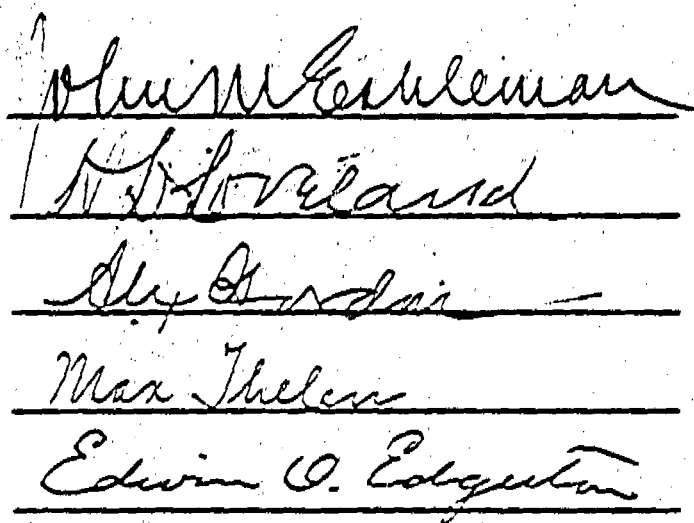 John M Eshleman
H D Loveland
Alex Gordon
Max Thelen
Edwin O. Edgerton